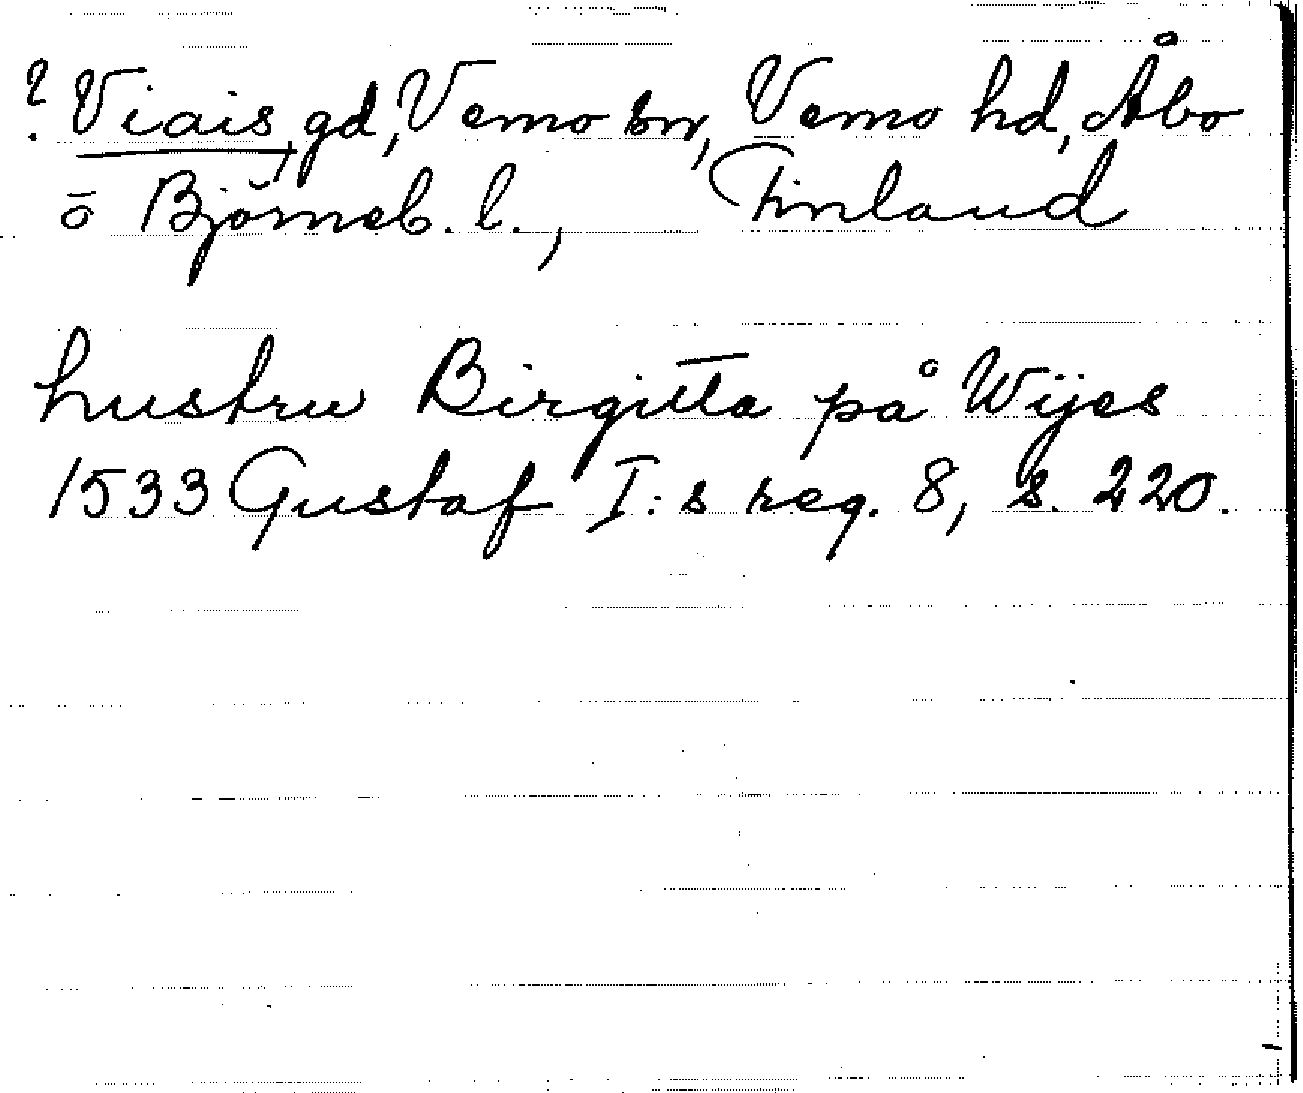 ? Viais, gd, Vemo sn, Vemo hd, Åbo
o Björneb. l., Finland
hustru Birgitta på Wijes
1533 Gustaf I:s reg. 8, s. 220.